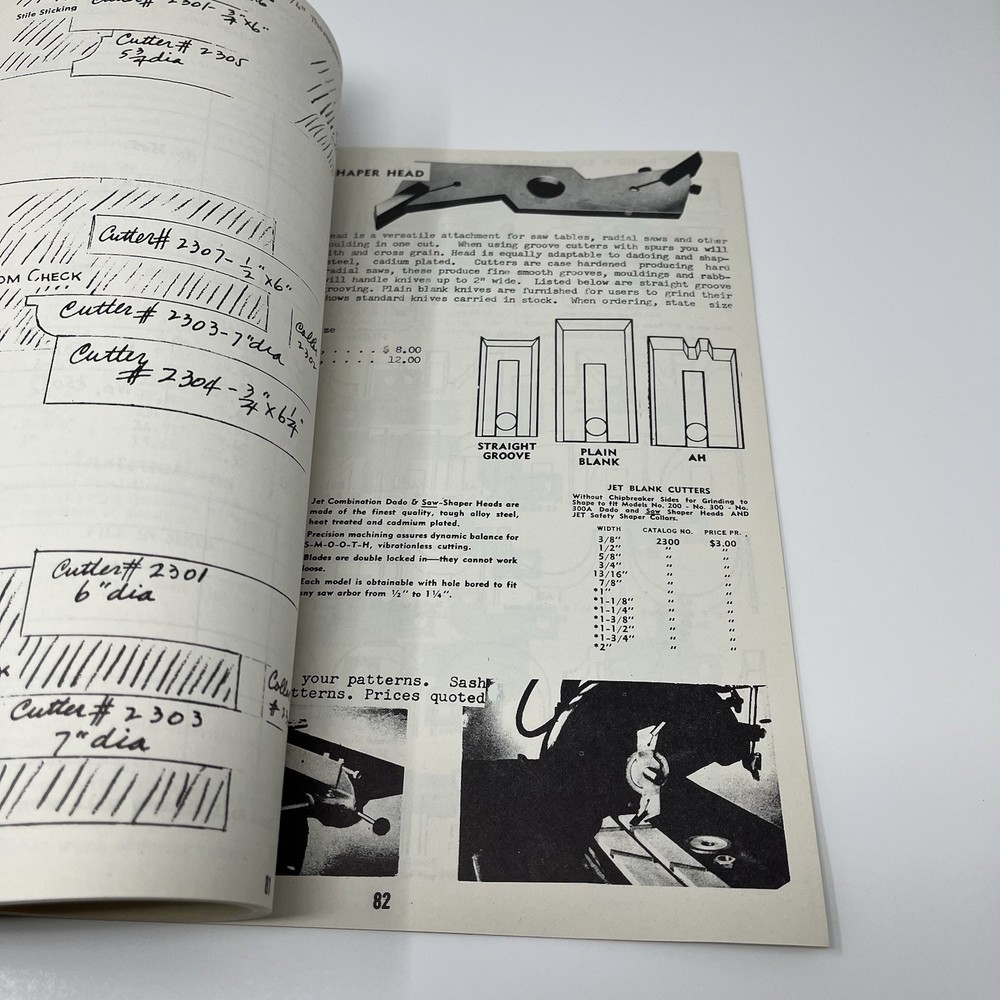 Stile Sticking
2301- 3/4"x6"
Cutter# 2305
5 3/4 dia
Cutter# 2307-1/2"x6"
OM CHECK
Cutter# 2303-7"dia
Cutter
# 2304-3/4"x6 1/4"
Cutter# 2301
6"dia
Cutter# 2303
7"dia
81
HAPER HEAD
ead is a versatile attachment for saw tables, radial saws and other
oulding in one cut. When using groove cutters with spurs you will
ith and cross grain. Head is equally adaptable to dadoing and shap-
steel, cadium plated. Cutters are case hardened producing hard
radial saws, these produce fine smooth grooves, mouldings and rabb-
ill handle knives up to 2" wide. Listed below are straight groove
rooving. Plain blank knives are furnished for users to grind their
hows standard knives carried in stock. When ordering, state size
ze
. . . . . $ 8.00
. . . . . 12.00
STRAIGHT
GROOVE
PLAIN
BLANK
AH
Jet Combination Dado & Saw-Shaper Heads are
made of the finest quality, tough alloy steel,
heat treated and cadmium plated.
Precision machining assures dynamic balance for
S-M-O-O-T-H, vibrationless cutting.
Blades are double locked in—they cannot work
loose.
Each model is obtainable with hole bored to fit
any saw arbor from ½" to 1¼".
JET BLANK CUTTERS
Without Chipbreaker Sides for Grinding to
Shape to fit Models No. 200 - No. 300 - No.
300A Dado and Saw Shaper Heads AND
JET Safety Shaper Collars.
WIDTH CATALOG NO. PRICE PR.
3/8" 2300 $3.00
1/2" " "
5/8" " "
3/4" " "
13/16" " "
7/8" " "
*1" " "
*1-1/8" " "
*1-1/4" " "
*1-3/8" " "
*1-1/2" " "
*1-3/4" " "
*2" " "
your patterns. Sash
tterns. Prices quoted
82